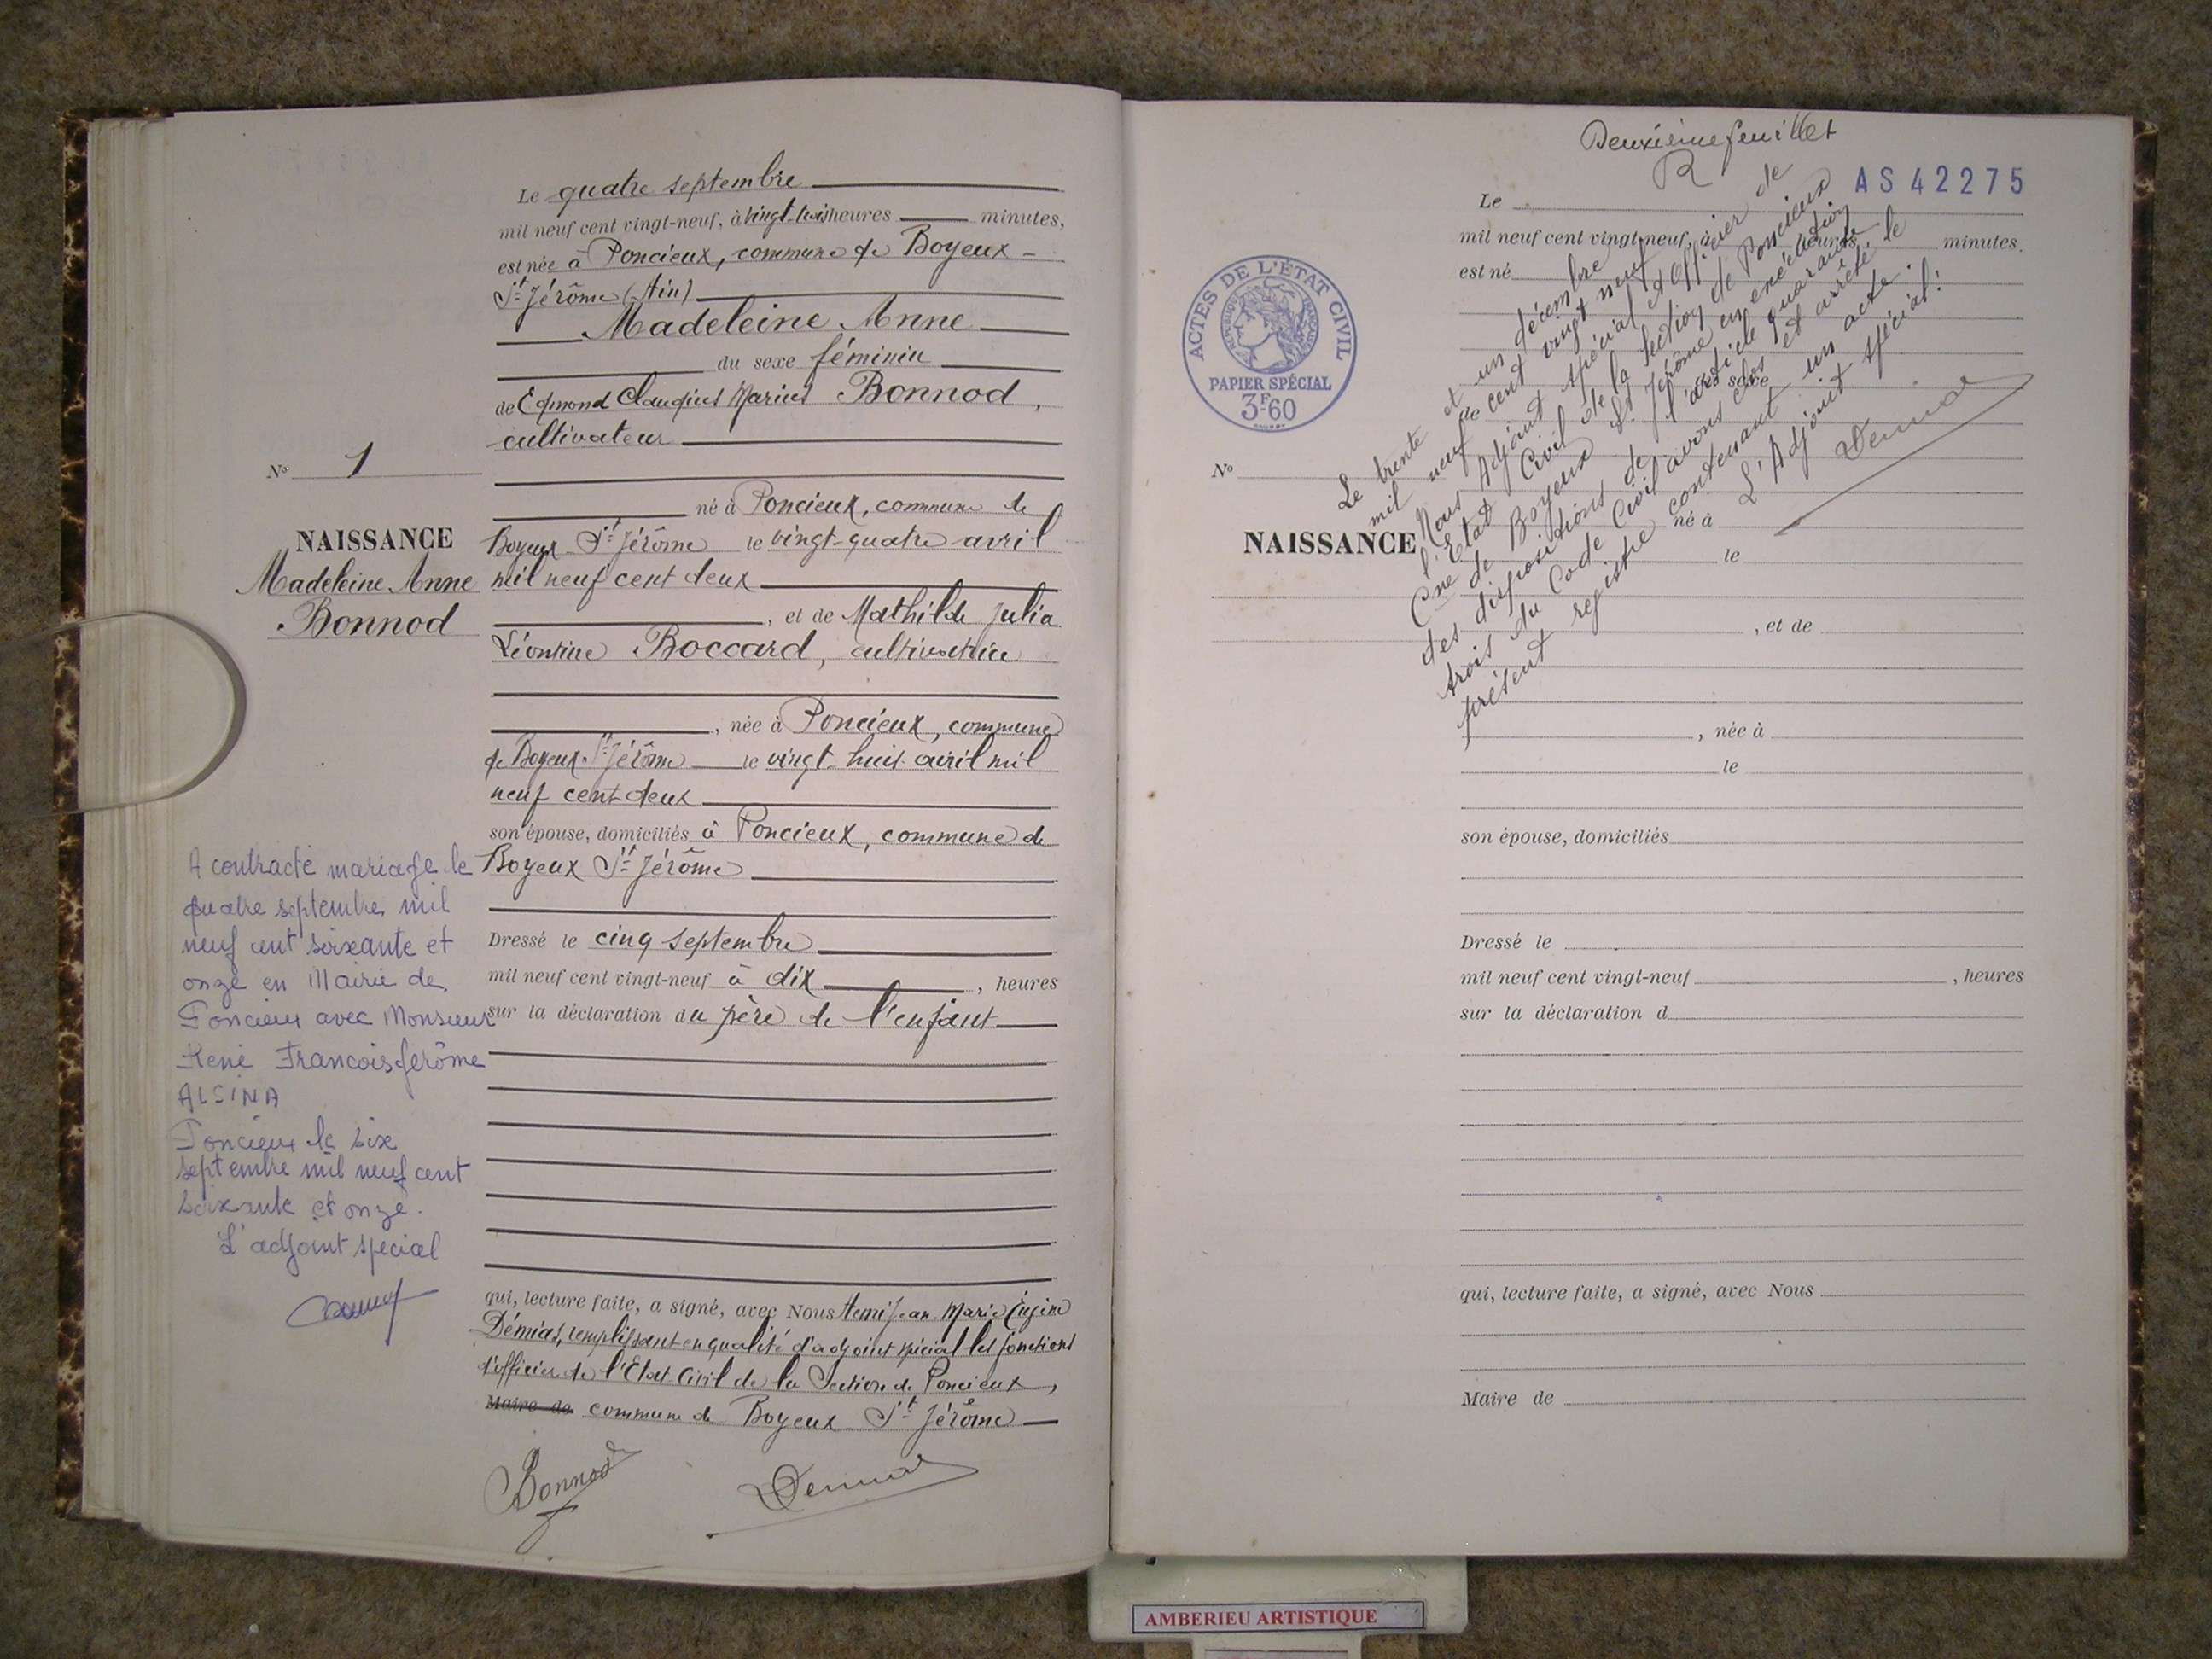 Le quatre septembre
mil neuf cent vingt-neuf, à vingt-trois heures minutes,
est née à Poncieux, commune de Boyeux-
St Jérôme (Ain)
Madeleine Anne
du sexe féminin
de Edmond Claudius Marius Bonnod,
cultivateur
né à Poncieux, commune de
Boyeux St Jérôme le vingt-quatre avril
mil neuf cent deux
, et de Mathilde Julia
Léontine Boccard, cultivatrice
, née à Poncieux, commune
de Boyeux-St Jérôme le vingt-huit avril mil
neuf cent deux
son épouse, domiciliés à Poncieux, commune de
Boyeux St Jérôme
Dressé le cinq septembre
mil neuf cent vingt-neuf à dix , heures
sur la déclaration du père de l'enfant
qui, lecture faite, a signé, avec Nous Jean Marie Eugène
Démias, remplissant en qualité d'adjoint spécial les fonctions
d'officier de l'Etat Civil de la Section de Poncieux,
Maire de commune de Boyeux St Jérôme
Bonnod
No 1
NAISSANCE
Madeleine Anne
Bonnod
A contracté mariage le
quatre septembre mil
neuf cent soixante et
onze en Mairie de
Poncieux avec Monsieur
René François Jérôme
ALSINA
Poncieux le six
septembre mil neuf cent
soixante et onze.
L'adjoint spécial
Deuxième feuillet
R
AS 42275
ACTES DE L'ÉTAT CIVIL
RÉPUBLIQUE FRANÇAISE
PAPIER SPÉCIAL
3F60
No
NAISSANCE
Le
mil neuf cent vingt-neuf, à heures minutes.
est né
du sexe
né à
le
, et de
, née à
le
son épouse, domiciliés
Dressé le
mil neuf cent vingt-neuf , heures
sur la déclaration d
qui, lecture faite, a signé, avec Nous
Maire de
Le trente et un décembre
mil neuf cent vingt neuf
Nous Adjoint spécial et Officier de
l'Etat Civil de la section de Poncieux
Cne de Boyeux St Jérôme en exécution
des dispositions de l'article quarante
trois du Code Civil avons clos et arrêté le
présent registre contenant un acte.
L'Adjoint spécial:
AMBERIEU ARTISTIQUE